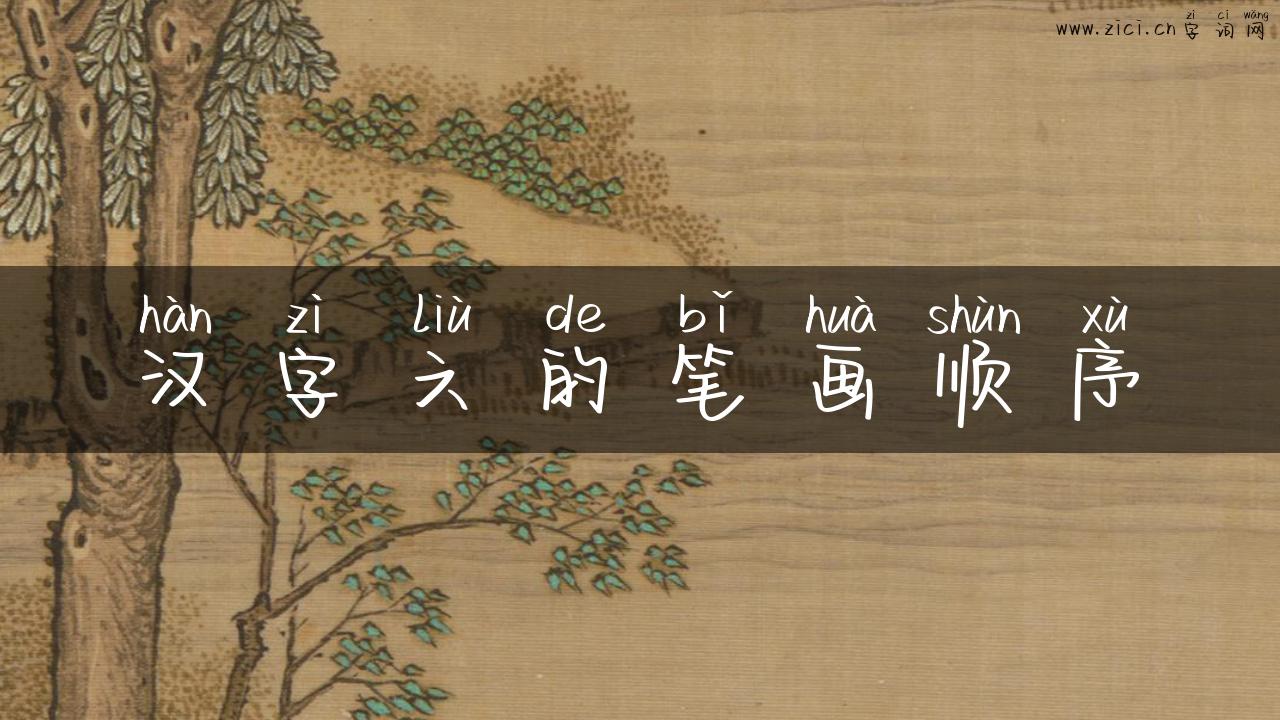 zì cí wǎng
www.zici.cn 字词网
hàn zì liù de bǐ huà shùn xù
汉字六的笔画顺序